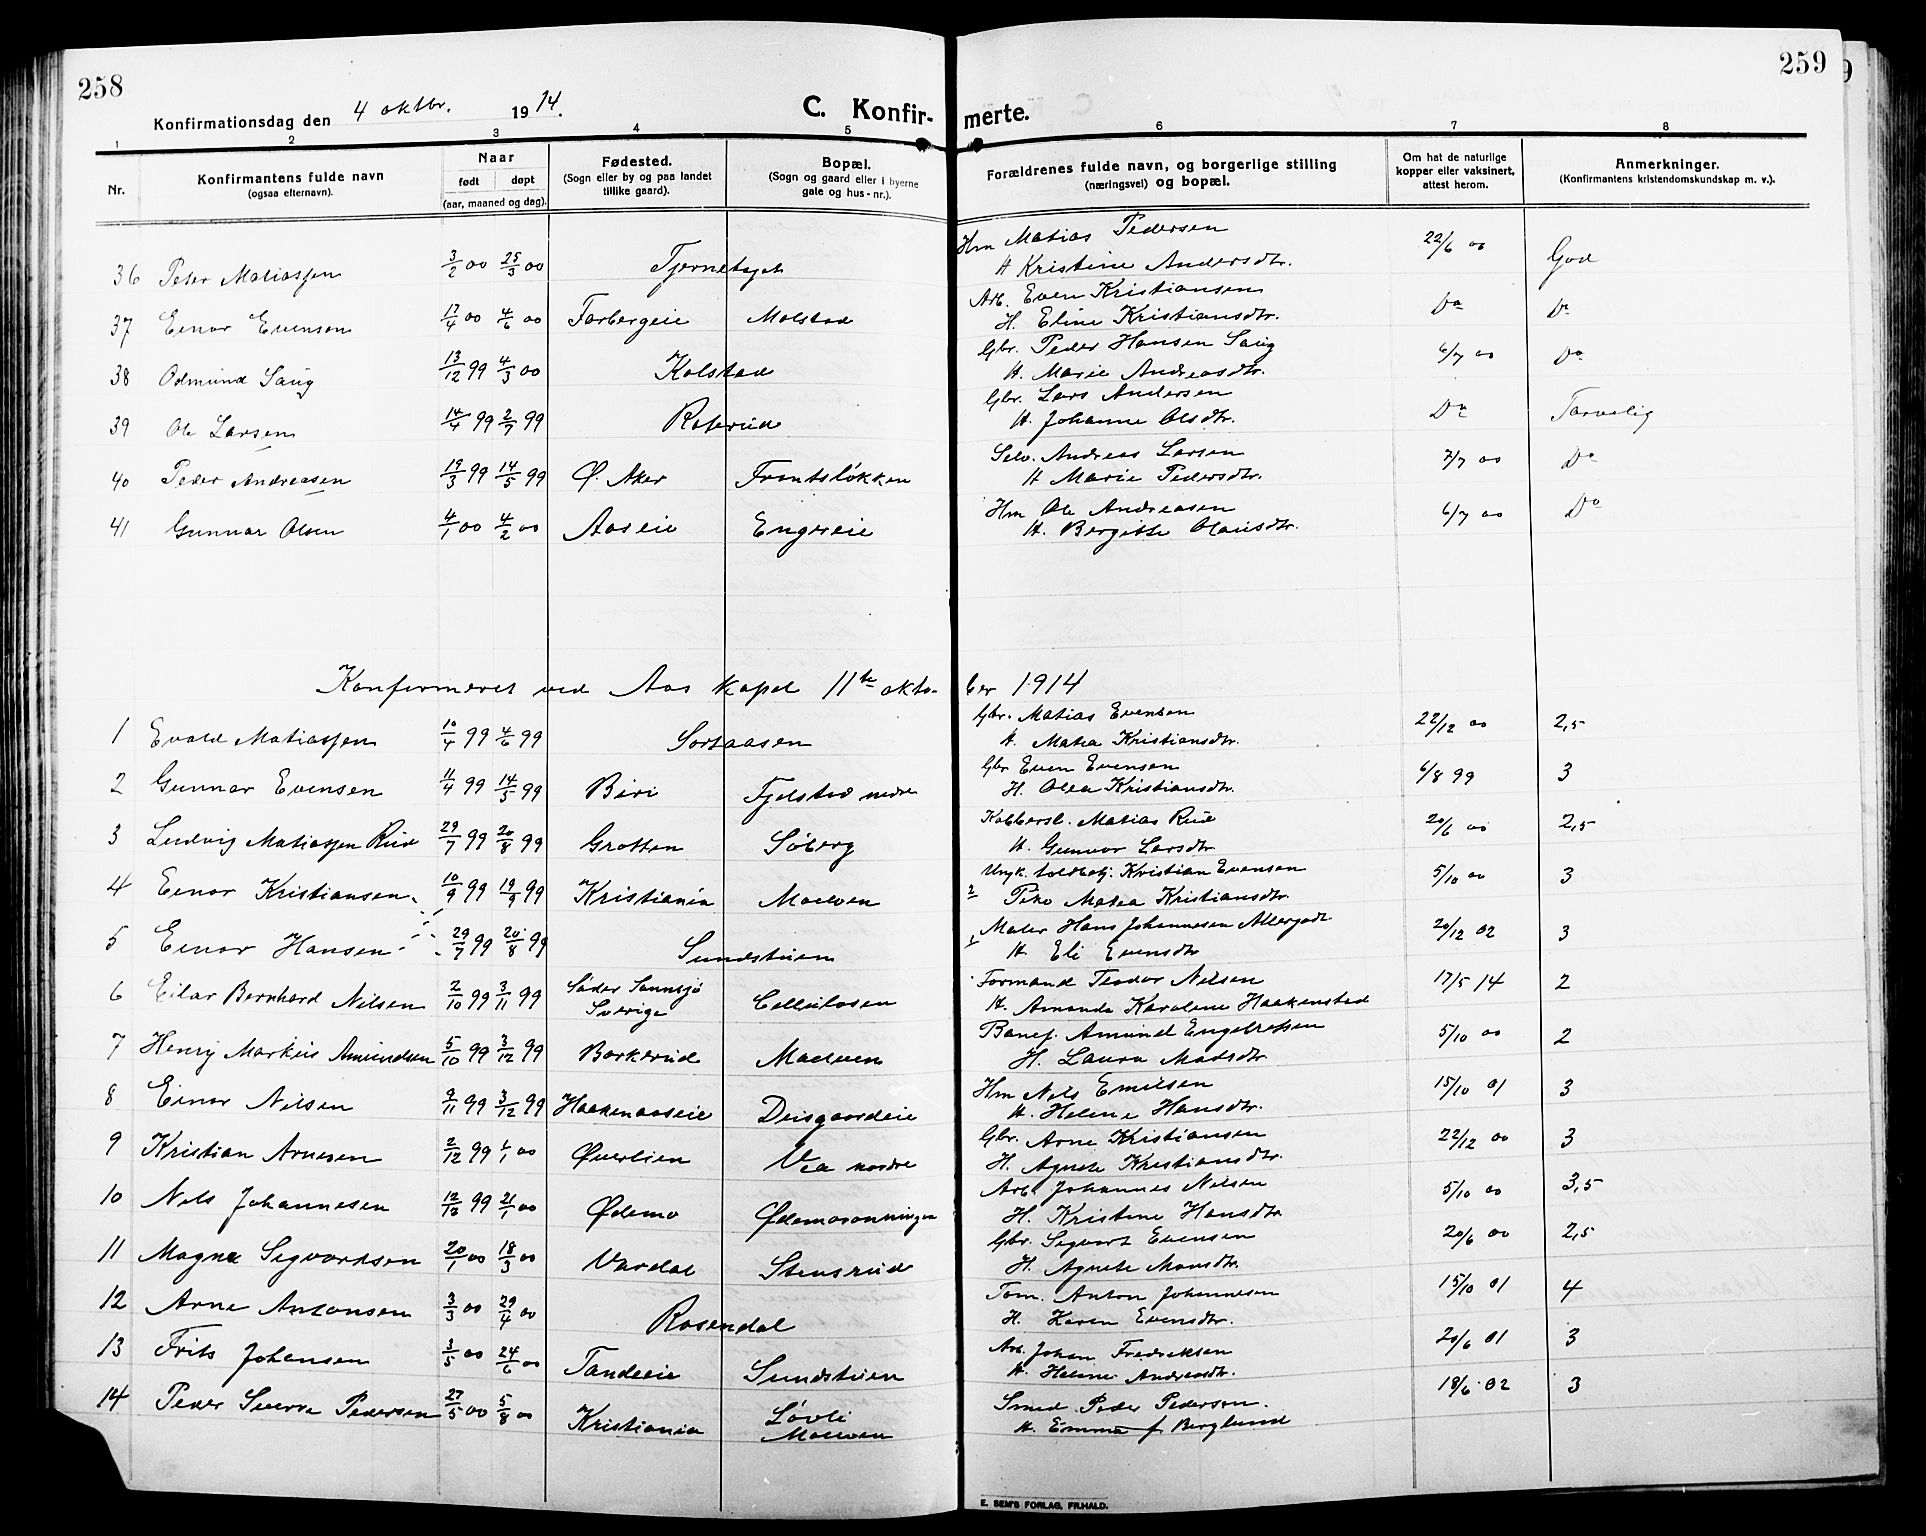 258
259
Konfirmationsdag den 4 oktbr. 1914.
C. Konfir-merte.
1 2 3 4 5 6 7 8
Nr.
Konfirmantens fulde navn
(ogsaa efternavn).
Naar
født døpt
(aar, maaned og dag).
Fødested.
(Sogn eller by og paa landet
tillike gaard).
Bopæl.
(Sogn og gaard eller i byerne
gate og hus-nr.).
Forældrenes fulde navn, og borgerlige stilling
(næringsvei) og bopæl.
Om hat de naturlige
kopper eller vaksinert,
attest herom.
Anmerkninger.
(Konfirmantens kristendomskundskap m. v.).
36 Peter Matiassen 3/2 00 25/3 00 Tjernetaget Hm Matias Pedersen 22/6 00 God
H Kristine Andersdtr.
37 Einar Evensen 17/4 00 4/6 00 Farbergeie Molstad Arb. Even Kristiansen Do Do
H. Eline Kristiansdtr.
38 Odmund Saug 13/12 99 4/3 00 Kolstad Gbr. Peder Hansen Saug 6/7 00 Do
H. Marie Andreasdtr.
39 Ole Larsen 14/4 99 2/7 99 Roterud Gbr. Lars Andersen Do Tarvelig
H. Johanne Olsdtr.
40 Peder Andreasen 19/3 99 14/5 99 Ø. Aker Frantsløkken Selv. Andreas Larsen 7/7 00 Do
H Marie Pedersdtr.
41 Gunnar Olsen 4/1 00 4/2 00 Aaseie Engereie Hm Ole Andreasen 6/7 00 Do
H. Bergitte Olausdtr.
Konfirmeret ved Aas kapel 11te okto-ber 1914
1 Evald Matiassen 10/4 99 4/6 99 Sortaasen Gbr. Matias Evensen 22/12 00 2,5
H. Matea Kristiansdtr.
2 Gunnar Evensen 11/4 99 14/5 99 Biri Fjelstad nedre Gbr Even Evensen 6/8 99 3
H. Olea Kristiansdtr.
3 Ludvig Matiassen Rud 29/7 99 20/8 99 Grotten Søberg Kobbersl. Matias Rud 20/6 00 2,5
H. Gunvor Larsdtr.
4 Einar Kristiansen 10/9 99 19/9 99 Kristiania Moelven Kristian Evensen 5/10 00 3
2 Pike Matea Kristiansdtr.
5 Einar Hansen 29/7 99 20/8 99 Sundstuen Maler Hans Johannesen Allergodt 20/12 02 3
1 H. Eli Evensdtr.
6 Eilar Bernhard Nilsen 2/10 99 3/11 99 Søder Sannsjø Cellulosen Formand Teodor Nilsen 17/5 14 2
Sverige H. Amanda Karoline Haakenstad
7 Henry Markus Amundsen 5/10 99 3/12 99 Borkerud Moelven Banef. Amund Engebretsen 5/10 00 2
H. Laura Madsdtr.
8 Einar Nilsen 9/11 99 3/12 99 Haakenaaseie Deisgaardeie Hm Nils Emilsen 15/10 01 3
H. Helene Hansdtr.
9 Kristian Arnesen 2/12 99 1/1 00 Øverlien Vea nordre Gbr. Arne Kristiansen 22/12 00 3
H. Agnete Kristiansdtr.
10 Nils Johannesen 12/12 99 21/1 00 Ødemo Ødemosætningen Arb. Johannes Nilsen 5/10 00 3,5
H. Kristine Hansdtr
11 Magne Sigvartsen 20/1 00 18/3 00 Vardal Stensrud Gbr. Sigvart Evensen 20/6 00 2,5
H. Agnete Monsdtr.
12 Arne Antonsen 3/3 00 29/4 00 Rosendal Tom. Anton Johannesen 15/10 01 4
H. Karen Evensdtr.
13 Frits Johansen 3/5 00 24/6 00 Tandeeie Sundstuen Arb. Johan Fredriksen 20/6 01 3
H. Helene Andreasdtr.
14 Peder Sverre Pedersen 27/5 00 5/8 00 Kristiania Løvli Smed Peder Pedersen. 18/6 02 3
Moelven H. Emma f Berglund
E. SEM'S FORLAG, FR.HALD.